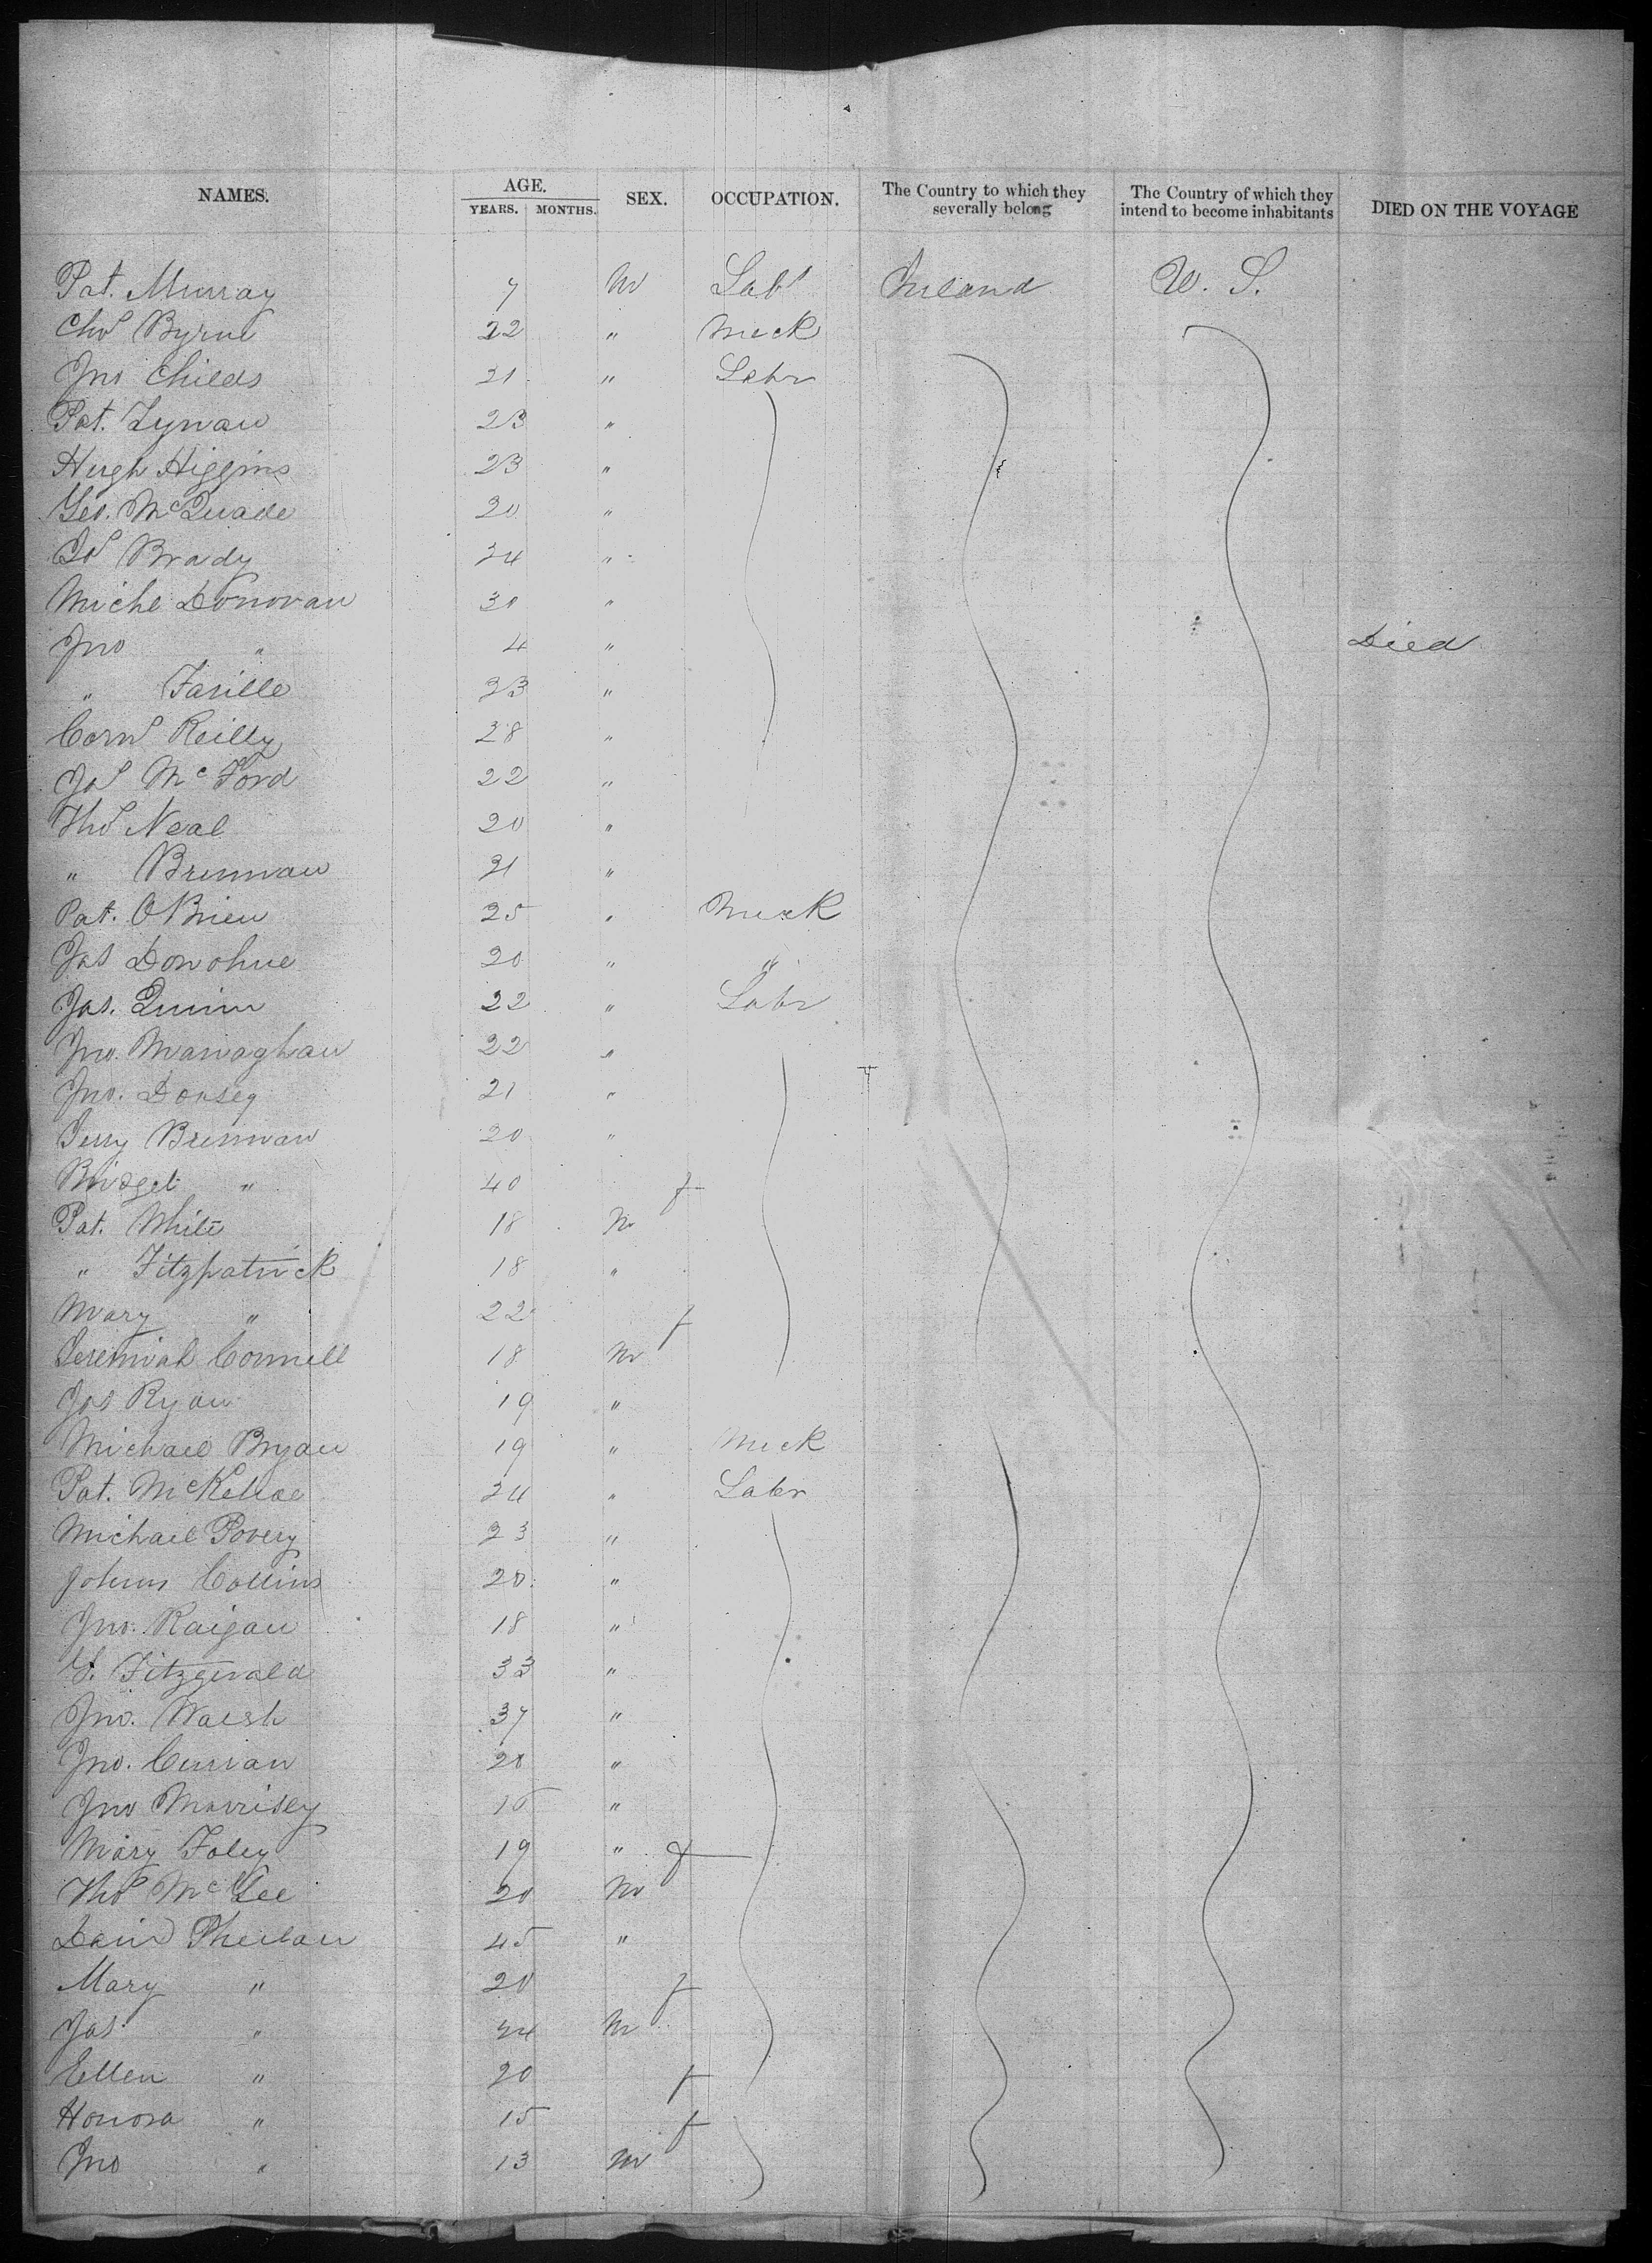 NAMES. AGE. YEARS. MONTHS. SEX. OCCUPATION. The Country to which they severally belong The Country of which they intend to become inhabitants DIED ON THE VOYAGE
Pat. Murray 7 M Labr Ireland U. S.
Chs Byrne 22 " Meck
Jno Childs 21 " Labr
Pat. Lynan 23 "
Hugh Higgins 23 "
Geo. McQuade 20 "
Js Brady 24 "
Michl Donovan 30 "
Jno " 4 " Died
" 23 "
Corns Reilly 28 "
Js McFord 22 "
Ths Neal 20 "
" Brennan 21 "
Pat. OBrien 25 " Meck
Jas Donohue 20 " "
Jas. Quinn 22 " Labr
Jno. Managhan 22 "
Jno. Dorsey 21 "
Jerry Brennan 20 "
Bridget " 40 f
Pat. White 18 M
" Fitzpatrick 18 "
Mary " 22 f
Jeremiah Connell 18 M
Jas Ryan 19 "
Michael Bryan 19 " Meck
Pat. 24 " Labr
Michael Povery 23 "
Collins 20 "
Jno. Raigan 18 "
Fitzgerald 33 "
Jno. Walsh 37 "
Jno. Curran 20 "
Jno Morrisey 16 "
Mary Foley 19 " f
Ths McGee 20 M
David Phelan 45 "
Mary " 20 f
Jas " 24 M
Ellen " 20 f
Honora " 15 f
Jno " 13 M